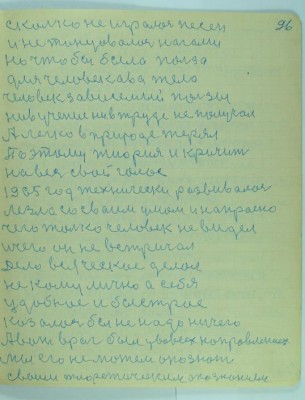 96
сколко не игралоя песен
и не танцовалоя нагами
но чтобы была полза
для человекава тела
человек зависемый ползы
невучении нивтруде не получал
А легко в природе терял
Поэтому теория и кричит
на вея свой голос
1935 год технически развивалоя
лезло со своим умом и напрасно
чего толко человек не видел
и чего он не встричал
Дело всяческое делоя
не кому лично а себя
удобное и быстрое
казалоя бы не надо ничего
А вот враг был у вовсех направлениях
мы его не можем опознат
своим теоретическим опознанием